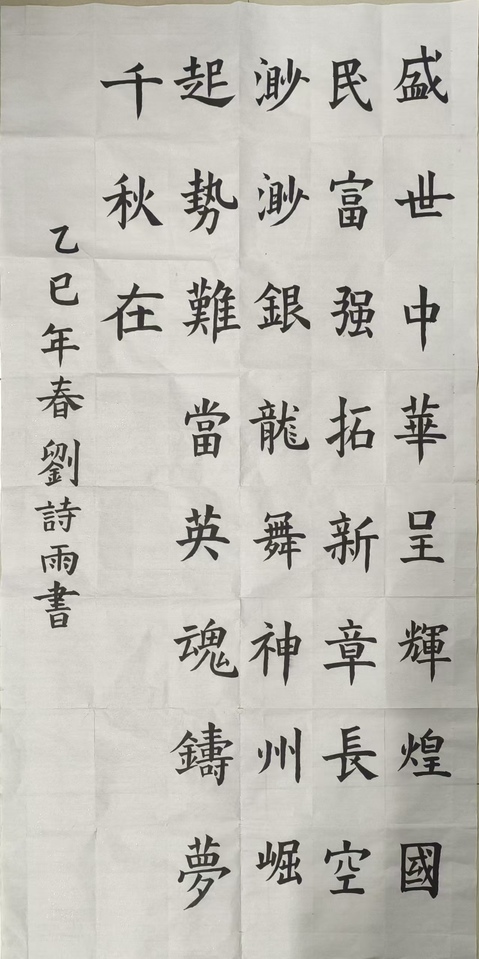 盛世中華呈輝煌國
民富强拓新章長空
渺渺銀龍舞神州崛
起勢難當英魂鑄夢
千秋在
乙巳年春劉詩雨書